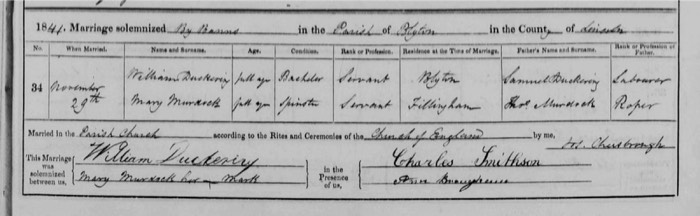 1841. Marriage solemnized By Banns in the Parish of Blyton in the County of Lincoln
No. When Married. Name and Surname. Age. Condition. Rank or Profession. Residence at the Time of Marriage. Father's Name and Surname. Rank or Profession of Father.
34 November 29th William Duckering full age Bachelor Servant Blyton Samuel Duckering Labourer
Mary Murdock full age Spinster Servant Fillingham Thos Murdock Roper
Married in the Parish Church according to the Rites and Ceremonies of the Church of England by me,
This Marriage was solemnized between us, William Duckering in the Presence of us, Charles Smithson
Mary Murdock her mark Ann